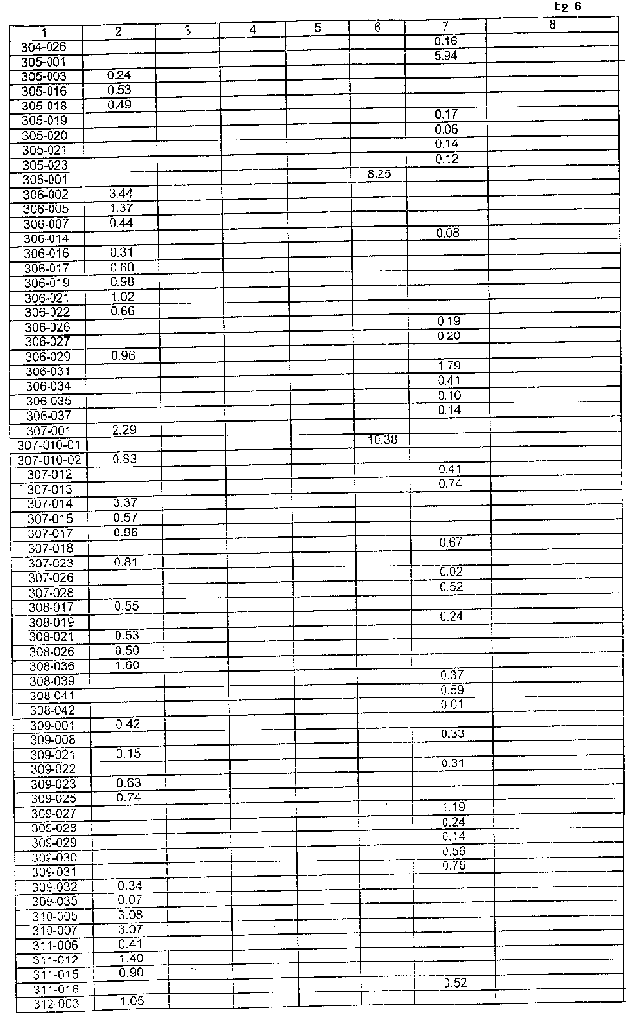 Էջ 6
1 2 3 4 5 6 7 8
304-026 0.16
305-001 5.94
305-003 0.24
305-016 0.53
305-018 0.49
305-019 0.17
305-020 0.06
305-021 0.14
305-023 0.12
306-001 8.25
306-002 3.44
306-005 1.37
306-007 0.44
306-014 0.08
306-016 0.31
306-017 0.60
306-019 0.98
306-021 1.02
306-022 0.66
306-026 0.19
306-027 0.20
306-029 0.96
306-031 1.79
306-034 0.41
306-035 0.10
306-037 0.14
307-001 2.29
307-010-01 10.38
307-010-02 0.63
307-012 0.41
307-013 0.74
307-014 3.37
307-015 0.57
307-017 0.96
307-018 0.67
307-023 0.81
307-026 0.02
307-028 0.52
308-017 0.55
308-019 0.24
308-021 0.53
308-026 0.50
308-036 1.60
308-039 0.37
308-041 0.59
308-042 0.01
309-001 0.42
309-008 0.33
309-021 0.15
309-022 0.31
309-023 0.63
309-025 0.74
309-027 1.19
309-028 0.24
309-029 0.14
309-030 0.56
309-031 0.76
309-032 0.34
309-035 0.07
310-005 3.08
310-007 3.07
311-006 0.41
311-012 1.40
311-015 0.90
311-016 0.52
312-003 1.05